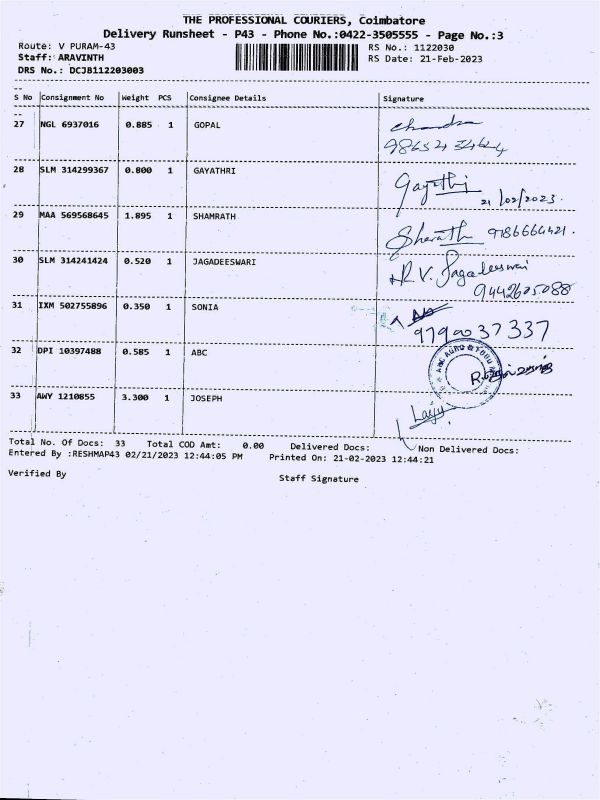 THE PROFESSIONAL COURIERS, Coimbatore
Delivery Runsheet - P43 - Phone No.:0422-3505555 - Page No.:3
Route: V PURAM-43 RS No.: 1122030
Staff: ARAVINTH RS Date: 21-Feb-2023
DRS No.: DCJB112203003
S No Consignment No Weight PCS Consignee Details Signature
27 NGL 6937016 0.885 1 GOPAL Chandra
28 SLM 314299367 0.800 1 GAYATHRI Gayathri
21/02/2023.
29 MAA 569568645 1.895 1 SHAMRATH Sharath 9786664421.
30 SLM 314241424 0.520 1 JAGADEESWARI R.V. Jagadeeswari
9442605088
31 IXM 502755896 0.350 1 SONIA
9790037337
32 DPI 10397488 0.585 1 ABC ABC AGRO & FOOD
33 AWY 1210855 3.300 1 JOSEPH
Total No. Of Docs: 33 Total COD Amt: 0.00 Delivered Docs: Non Delivered Docs:
Entered By :RESHMAP43 02/21/2023 12:44:05 PM Printed On: 21-02-2023 12:44:21
Verified By Staff Signature